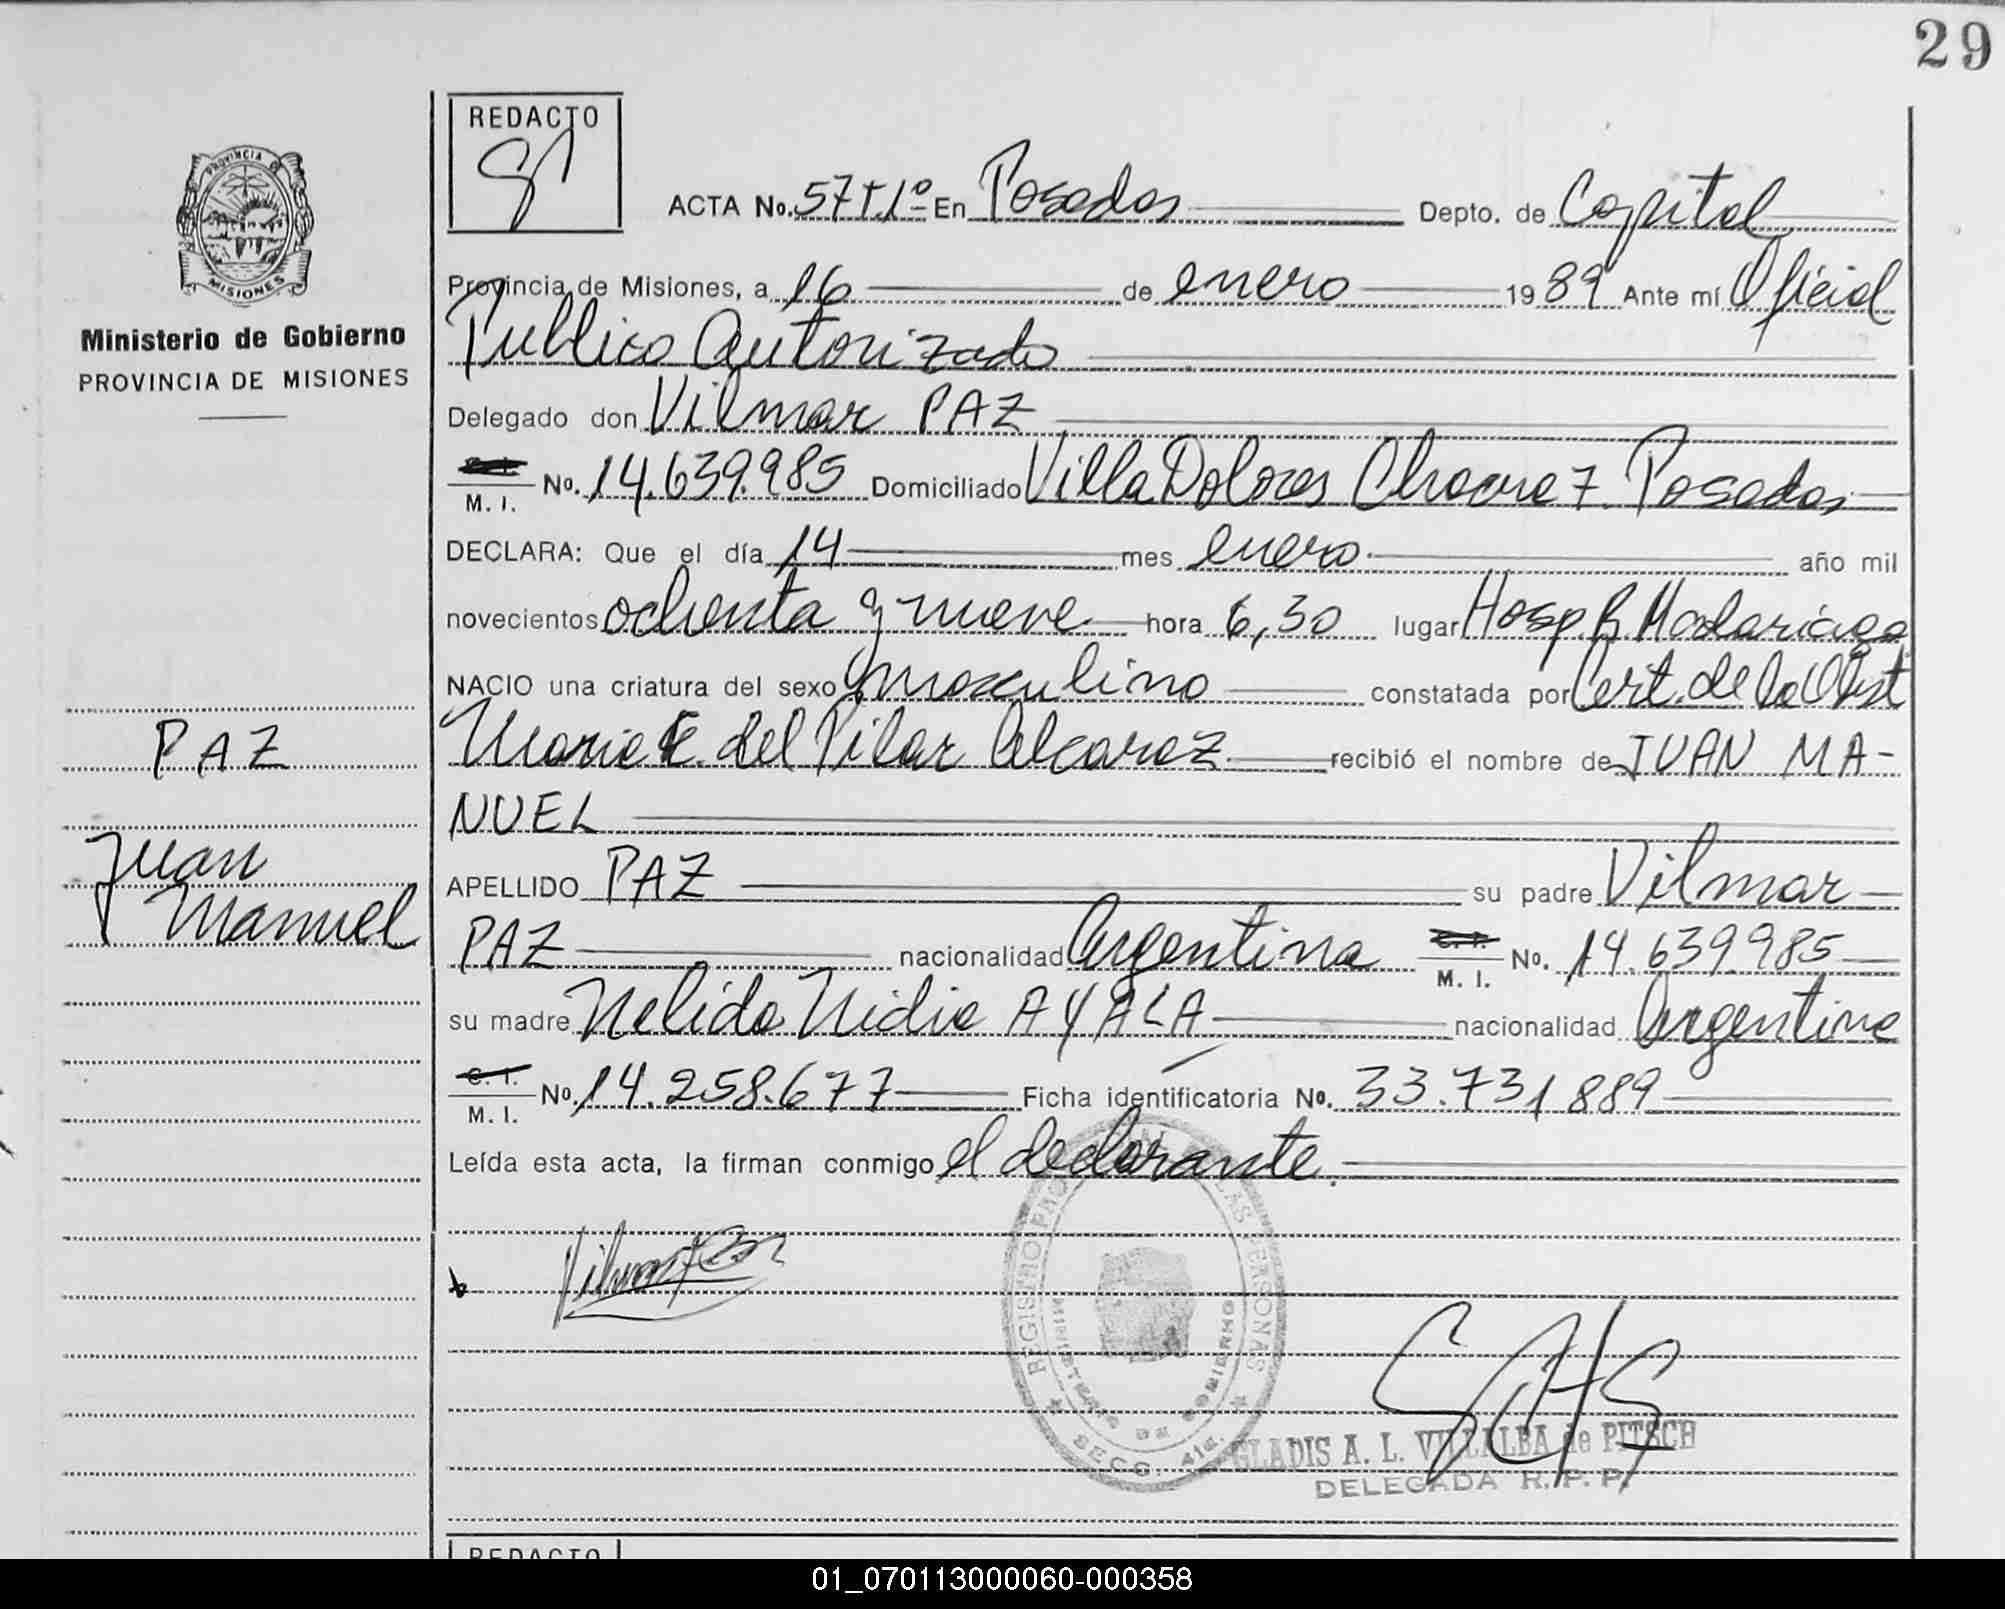 29
REDACTO
PROVINCIA DE
MISIONES
Ministerio de Gobierno
PROVINCIA DE MISIONES
PAZ
Juan
Manuel
ACTA No. 57 T.1º En Posadas Depto. de Capital
Provincia de Misiones, a 16 de enero 1989 Ante mí Oficial
Publico Autorizado
Delegado don Vilmar PAZ
C. I. M. I. No. 14.639.985 Domiciliado Villa Dolores Chacra 7. Posadas
DECLARA: Que el día 14 mes enero año mil
novecientos ochenta y nueve hora 6,30 lugar Hosp. R. Madariaga
NACIO una criatura del sexo masculino constatada por Cert. de la Obst
Maria E. del Pilar Alcaraz recibió el nombre de JUAN MA-
NUEL
APELLIDO PAZ su padre Vilmar
PAZ nacionalidad Argentina C. I. M. I. No. 14.639.985
su madre Nelida Nidia AYALA nacionalidad Argentina
C. I. M. I. No. 14.258.677 Ficha identificatoria No. 33.731.889
Leída esta acta, la firman conmigo el declarante.
REGISTRO PERSONAS
MINISTERIO DE GOBIERNO
SECC. 41a.
GLADIS A. L. VILLALBA de PITSCH
DELEGADA R. P. P.
REDACTO
01_070113000060-000358